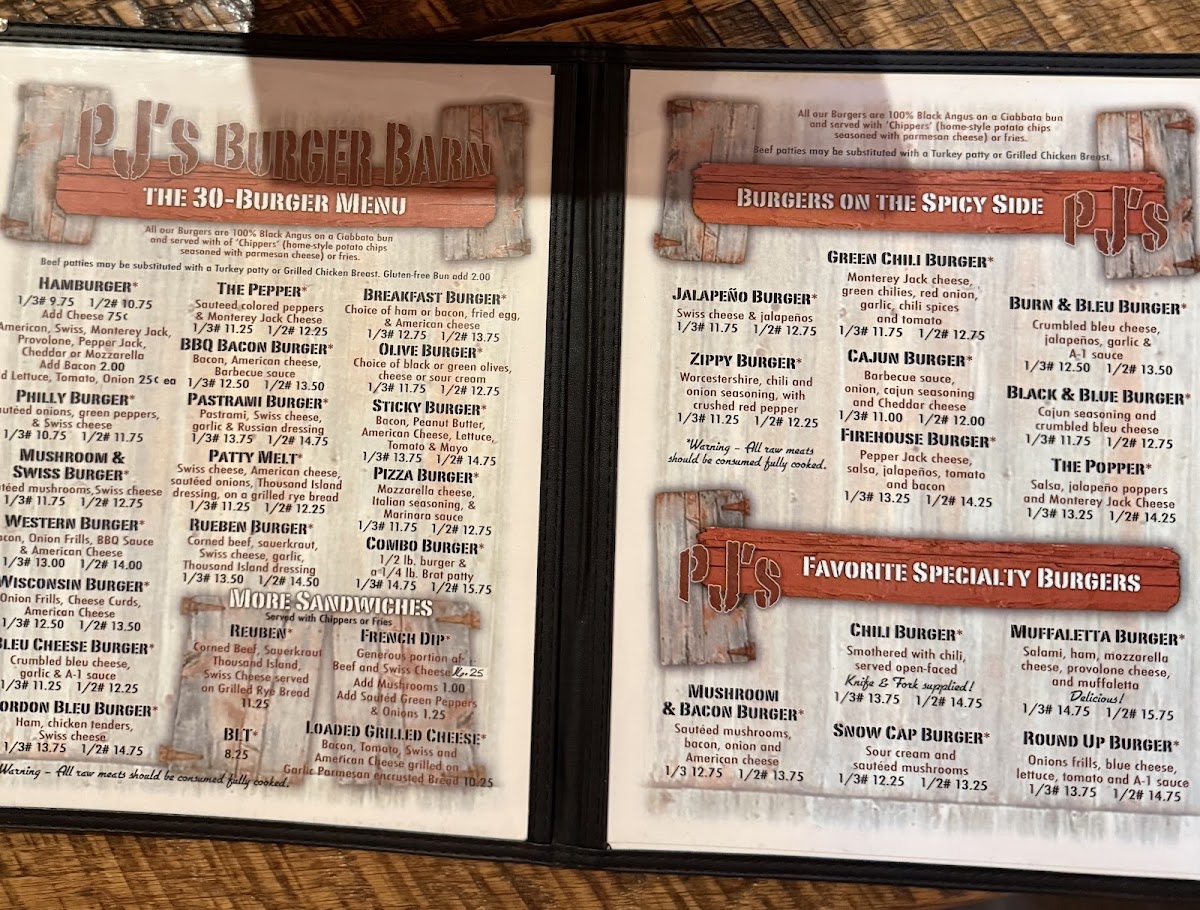 PJ's Burger Barn
The 30-Burger Menu
All our Burgers are 100% Black Angus on a Ciabbata bun
and served with of 'Chippers' (home-style potato chips
seasoned with parmesan cheese) or fries.
Beef patties may be substituted with a Turkey patty or Grilled Chicken Breast. Gluten-free Bun add 2.00
Hamburger*
1/3# 9.75 1/2# 10.75
Add Cheese 75¢
American, Swiss, Monterey Jack,
Provolone, Pepper Jack,
Cheddar or Mozzarella
Add Bacon 2.00
Lettuce, Tomato, Onion 25¢ ea
Philly Burger*
onions, green peppers,
& Swiss cheese
1/3# 10.75 1/2# 11.75
Mushroom &
Swiss Burger*
mushrooms, Swiss cheese
1/3# 11.75 1/2# 12.75
Western Burger*
Onion Frills, BBQ Sauce
& American Cheese
1/3# 13.00 1/2# 14.00
Wisconsin Burger*
Onion Frills, Cheese Curds,
American Cheese
1/3# 12.50 1/2# 13.50
Bleu Cheese Burger*
Crumbled bleu cheese,
garlic & A-1 sauce
1/3# 11.25 1/2# 12.25
Bleu Burger*
Ham, chicken tenders,
Swiss cheese
1/3# 13.75 1/2# 14.75
The Pepper*
Sauteed colored peppers
& Monterey Jack Cheese
1/3# 11.25 1/2# 12.25
BBQ Bacon Burger*
Bacon, American cheese,
Barbecue sauce
1/3# 12.50 1/2# 13.50
Pastrami Burger*
Pastrami, Swiss cheese,
garlic & Russian dressing
1/3# 13.75 1/2# 14.75
Patty Melt*
Swiss cheese, American cheese,
sautéed onions, Thousand Island
dressing, on a grilled rye bread
1/3# 11.25 1/2# 12.25
Rueben Burger*
Corned beef, sauerkraut,
Swiss cheese, garlic,
Thousand Island dressing
1/3# 13.50 1/2# 14.50
Breakfast Burger*
Choice of ham or bacon, fried egg,
& American cheese
1/3# 12.75 1/2# 13.75
Olive Burger*
Choice of black or green olives,
cheese or sour cream
1/3# 11.75 1/2# 12.75
Sticky Burger*
Bacon, Peanut Butter,
American Cheese, Lettuce,
Tomato & Mayo
1/3# 13.75 1/2# 14.75
Pizza Burger*
Mozzarella cheese,
Italian seasoning, &
Marinara sauce
1/3# 11.75 1/2# 12.75
Combo Burger*
1/2 lb. burger &
a 1/4 lb. Brat patty
1/3# 14.75 1/2# 15.75
More Sandwiches
Served with Chippers or Fries
Reuben*
Corned Beef, Sauerkraut
Thousand Island,
Swiss Cheese served
on Grilled Rye Bread
11.25
BLT*
8.25
French Dip*
Generous portion of
Beef and Swiss Cheese .25
Add Mushrooms 1.00
Add Sauted Green Peppers
& Onions 1.25
Loaded Grilled Cheese*
Bacon, Tomato, Swiss and
American Cheese grilled on
Garlic Parmesan encrusted Bread 10.25
Warning – All raw meats should be consumed fully cooked.
All our Burgers are 100% Black Angus on a Ciabbata bun
and served with 'Chippers' (home-style potato chips
seasoned with parmesan cheese) or fries.
Beef patties may be substituted with a Turkey patty or Grilled Chicken Breast.
Burgers on the Spicy Side
PJ's
Jalapeño Burger*
Swiss cheese & jalapeños
1/3# 11.75 1/2# 12.75
Zippy Burger*
Worcestershire, chili and
onion seasoning, with
crushed red pepper
1/3# 11.25 1/2# 12.25
*Warning – All raw meats
should be consumed fully cooked.
Green Chili Burger*
Monterey Jack cheese,
green chilies, red onion,
garlic, chili spices
and tomato
1/3# 11.75 1/2# 12.75
Cajun Burger*
Barbecue sauce,
onion, cajun seasoning
and Cheddar cheese
1/3# 11.00 1/2# 12.00
Firehouse Burger*
Pepper Jack cheese,
salsa, jalapeños, tomato
and bacon
1/3# 13.25 1/2# 14.25
Burn & Bleu Burger*
Crumbled bleu cheese,
jalapeños, garlic &
A-1 sauce
1/3# 12.50 1/2# 13.50
Black & Blue Burger*
Cajun seasoning and
crumbled bleu cheese
1/3# 11.75 1/2# 12.75
The Popper*
Salsa, jalapeño poppers
and Monterey Jack Cheese
1/3# 13.25 1/2# 14.25
PJ's
Favorite Specialty Burgers
Mushroom
& Bacon Burger*
Sautéed mushrooms,
bacon, onion and
American cheese
1/3 12.75 1/2# 13.75
Chili Burger*
Smothered with chili,
served open-faced
Knife & Fork supplied!
1/3# 13.75 1/2# 14.75
Snow Cap Burger*
Sour cream and
sautéed mushrooms
1/3# 12.25 1/2# 13.25
Muffaletta Burger*
Salami, ham, mozzarella
cheese, provolone cheese,
and muffaletta
Delicious!
1/3# 14.75 1/2# 15.75
Round Up Burger*
Onions frills, blue cheese,
lettuce, tomato and A-1 sauce
1/3# 13.75 1/2# 14.75